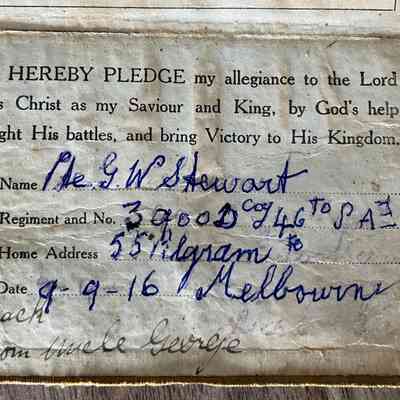 HEREBY PLEDGE my allegiance to the Lord
s Christ as my Saviour and King, by God's help
ght His battles, and bring Victory to His Kingdom.
Name Pte. G. W Stewart
Regiment and No. 3900 D Coy 46
Home Address 55
Date 9-9-16 Melbourne
ack
om Uncle George